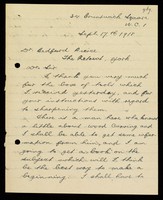 24 Brunswick Square
W.C.1
Sept. 17th 1918
Dr. Bedford Pierce
The Retreat, York
Dear Sir,
I thank you very much
for the box of tools which
I received yesterday, and for
your instructions with regard
to sharpening them.
There is a man here who knows
a little about wood carving and
I shall be able to get some infor-
mation from him, and I am
going to get a book on the
subject which will I think
be the best way to make a
beginning. I shall have to